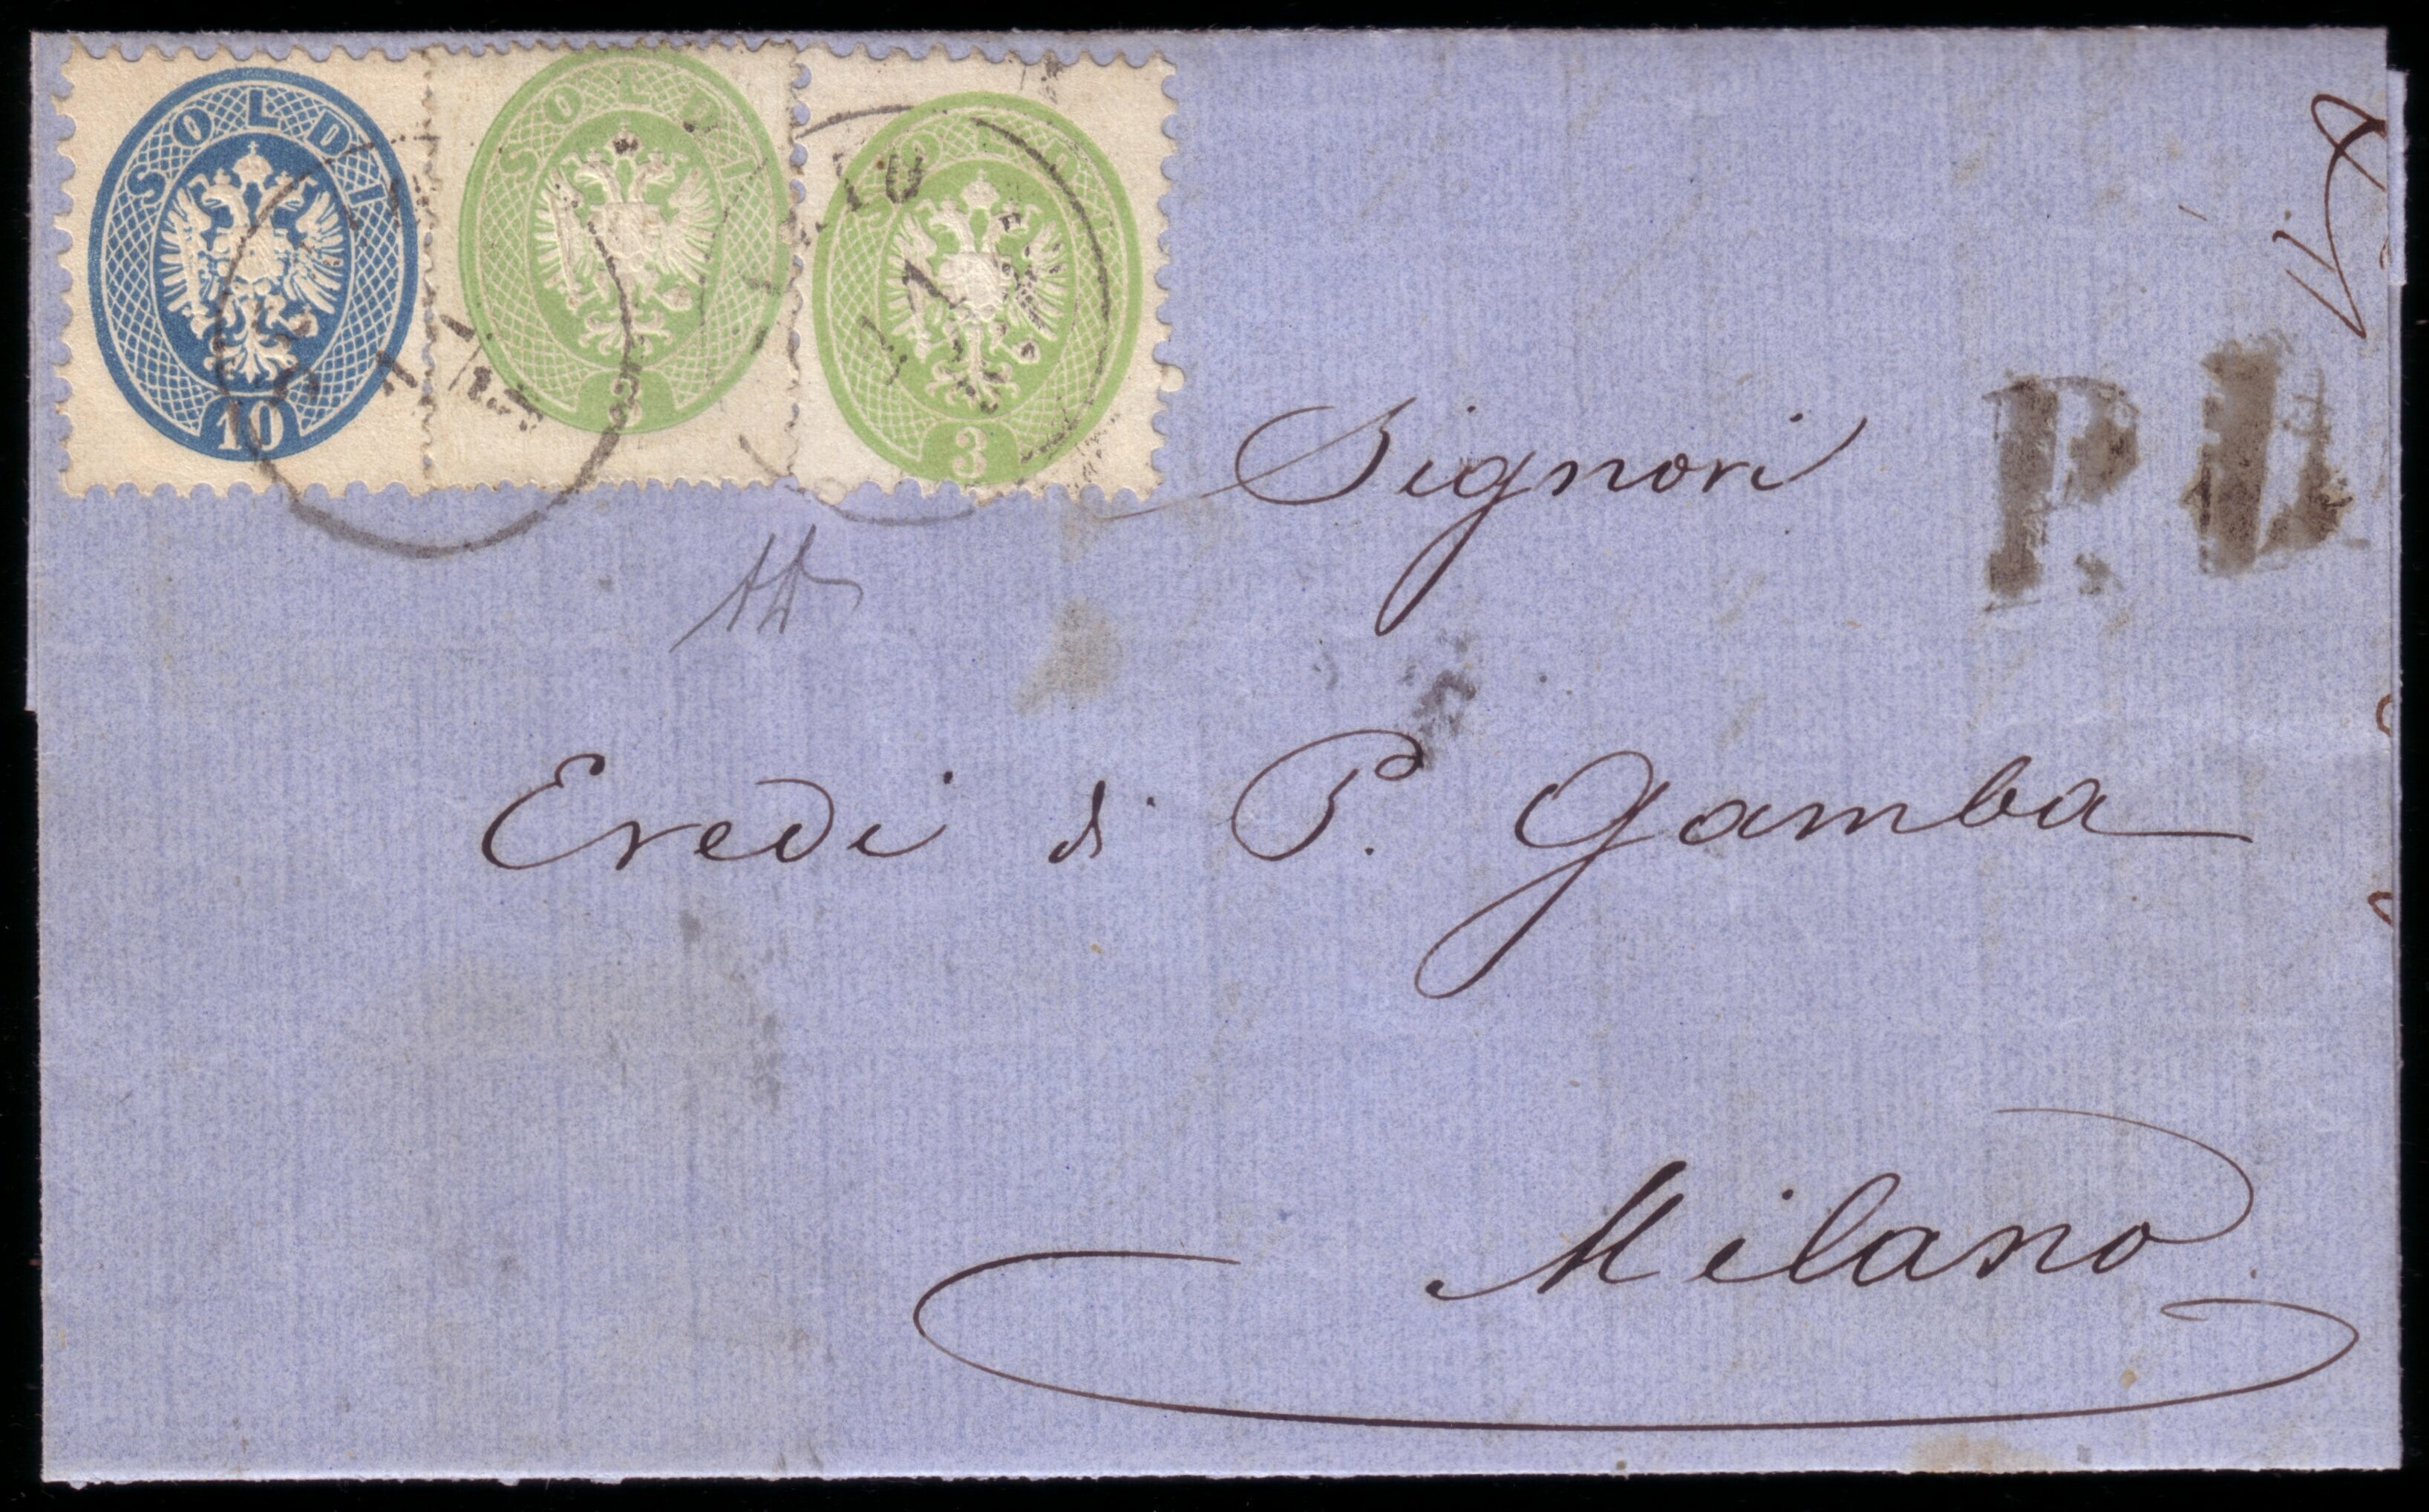 SOLDI
10
SOLDI
3
SOLDI
3
P.D.
Signori
Eredi di P. Gamba
Milano